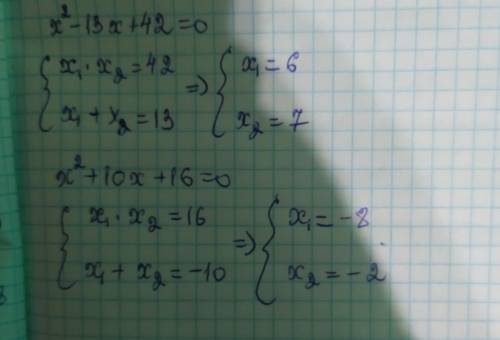 x² - 13x + 42 = 0
{ x₁ · x₂ = 42 => { x₁ = 6
x₁ + x₂ = 13 x₂ = 7
x² + 10x + 16 = 0
{ x₁ · x₂ = 16 => { x₁ = -8
x₁ + x₂ = -10 x₂ = -2